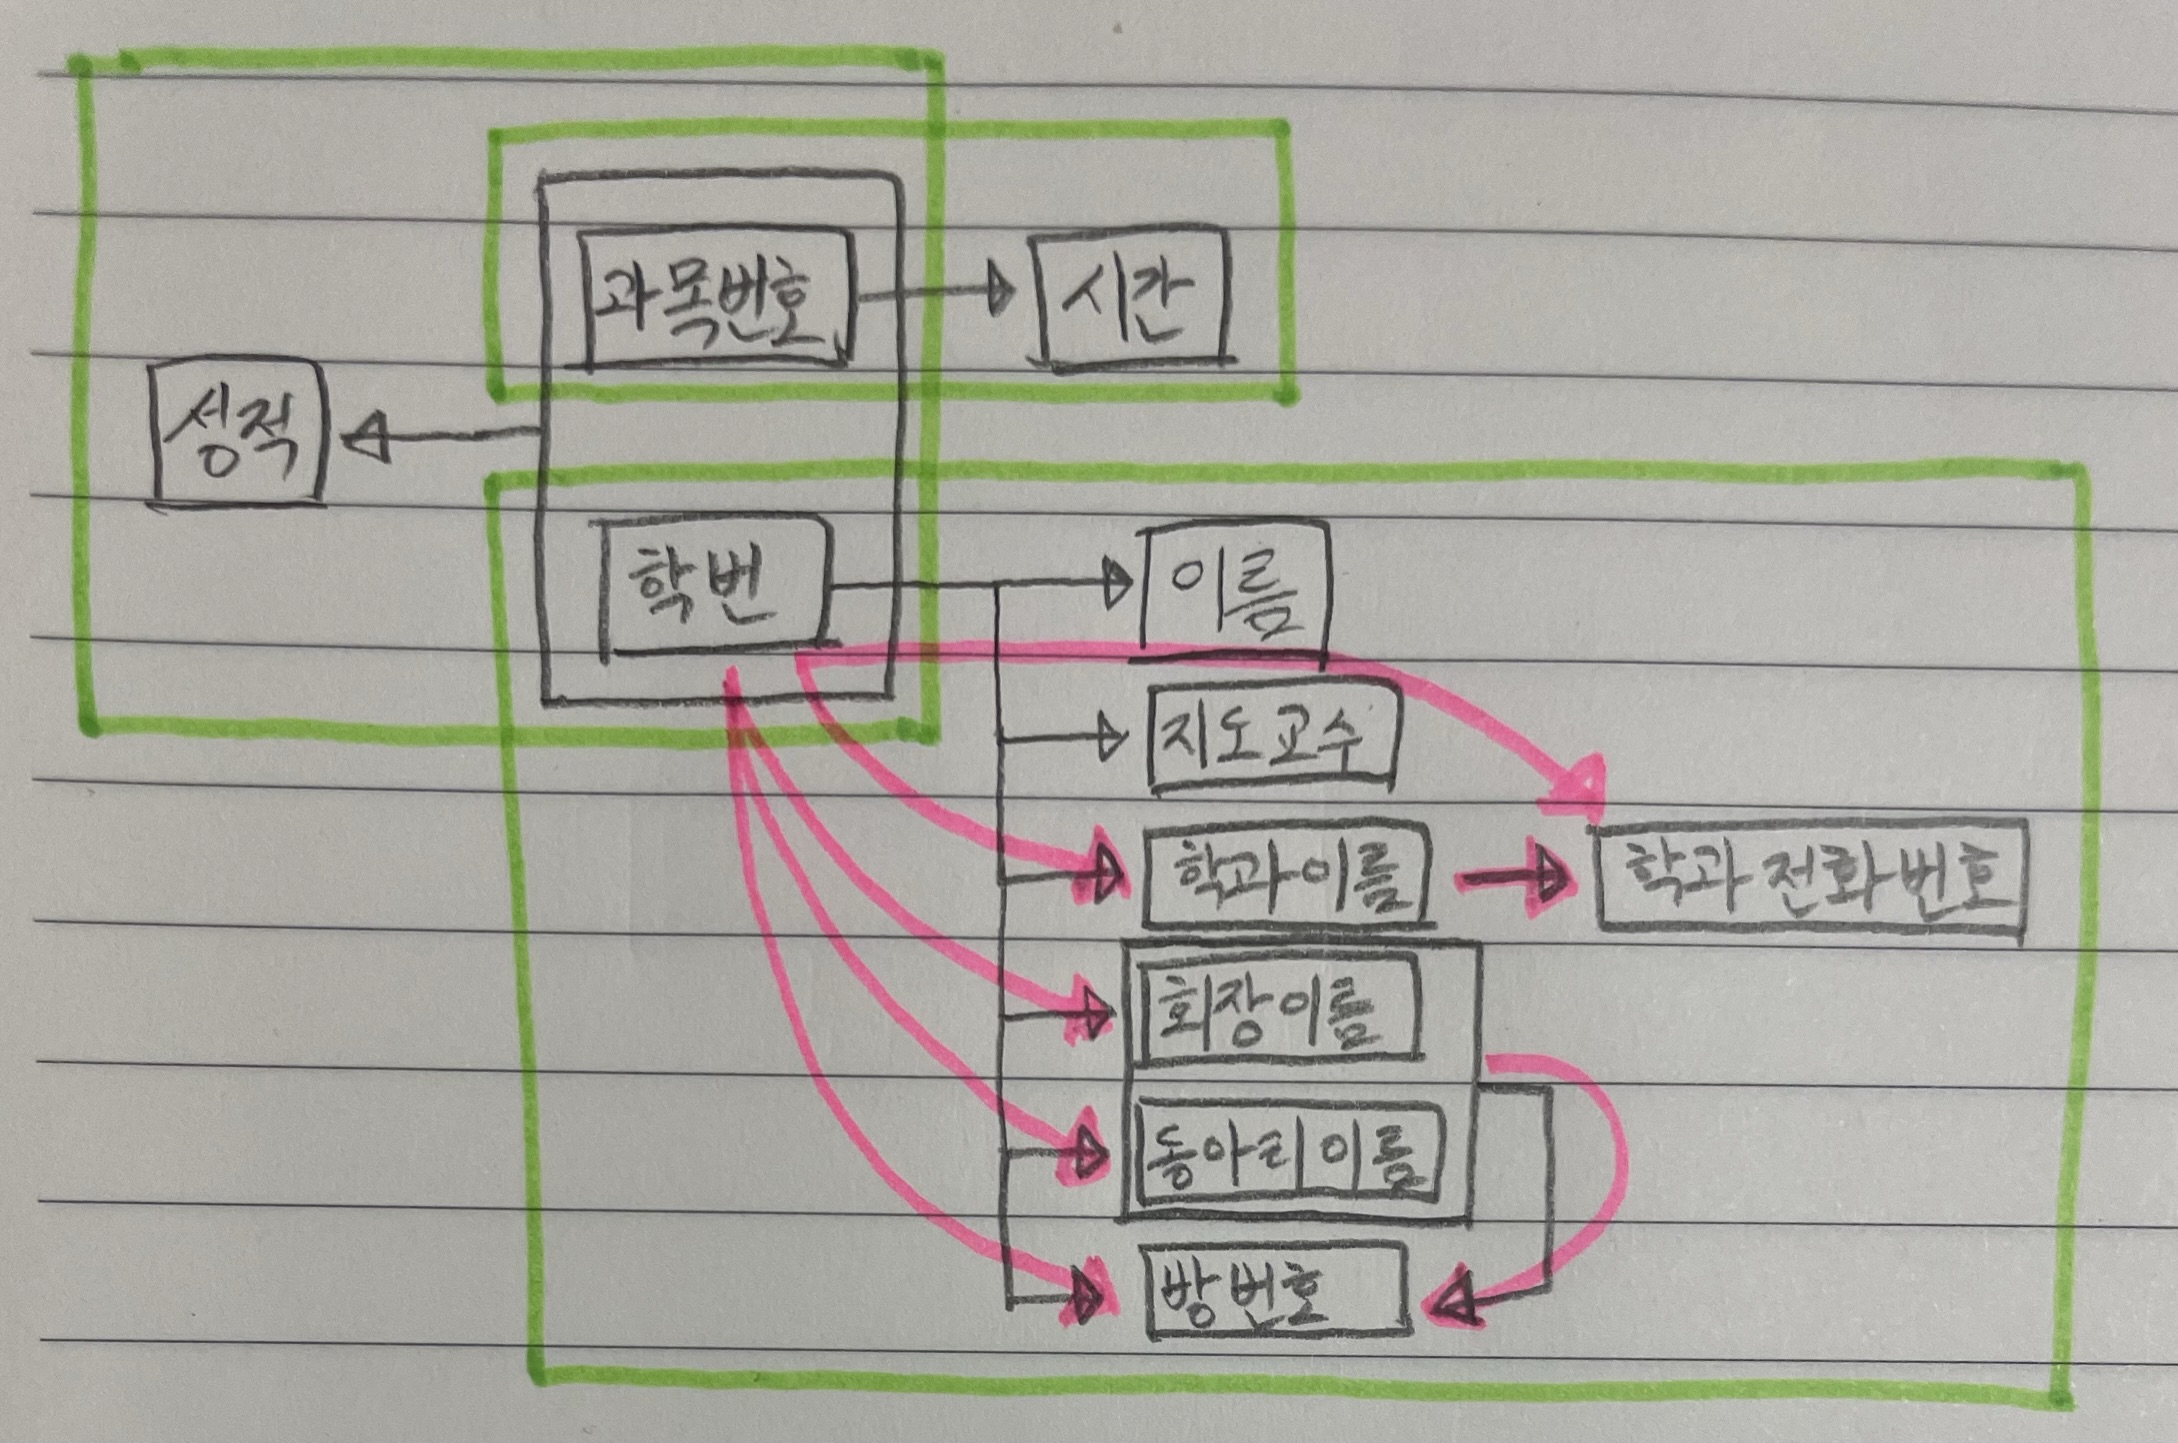 과목번호 시간
성적
학번 이름
지도교수
학과이름 학과 전화번호
회장이름
동아리이름
방번호